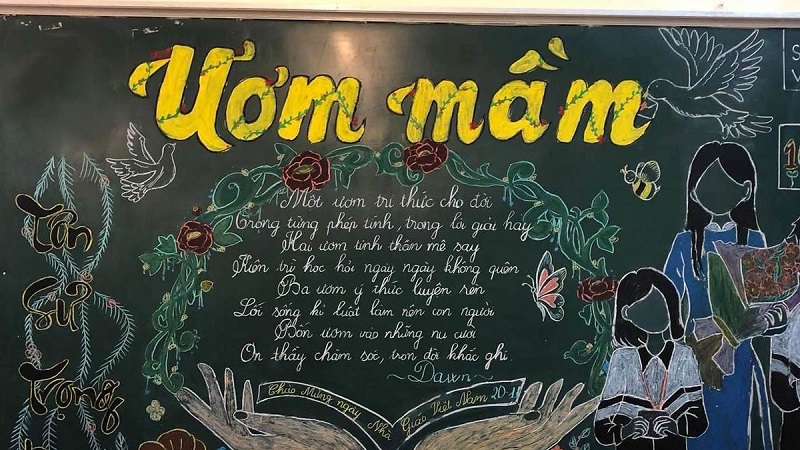 Ươm mầm
Một ươm tri thức cho đời
Trong từng phép tính, trong lời giải hay
Hai ươm tinh thần mê say
Kiên trì học hỏi ngày ngày không quên
Ba ươm ý thức luyện rèn
Lối sống kỉ luật làm nên con người
Bốn ươm vào những nụ cười
Ơn thầy chăm sóc, trọn đời khắc ghi.
~Dawn~
Chào Mừng ngày Nhà Giáo Việt Nam 20-1
Tôn
Sư
Trọng